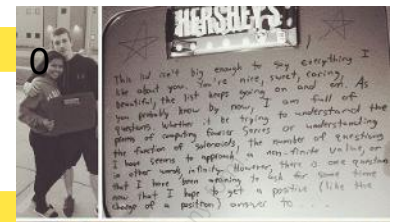 0
HERSHEY'S
This lid isn't big enough to say everything I
like about you. You're nice, sweet, caring,
beautiful, the list keeps going on and on. As
you probably know by now, I am full of
questions. Whether it be trying to understand the
of computing Fourier Series or understanding
the function of solenoids, the number of questions
I have seems to approach a non-finite value, or
in other words, infinity. However, there is one question
that I have been meaning to ask for some time
now that I hope to get a positive (like the
charge of a positron) answer to ...